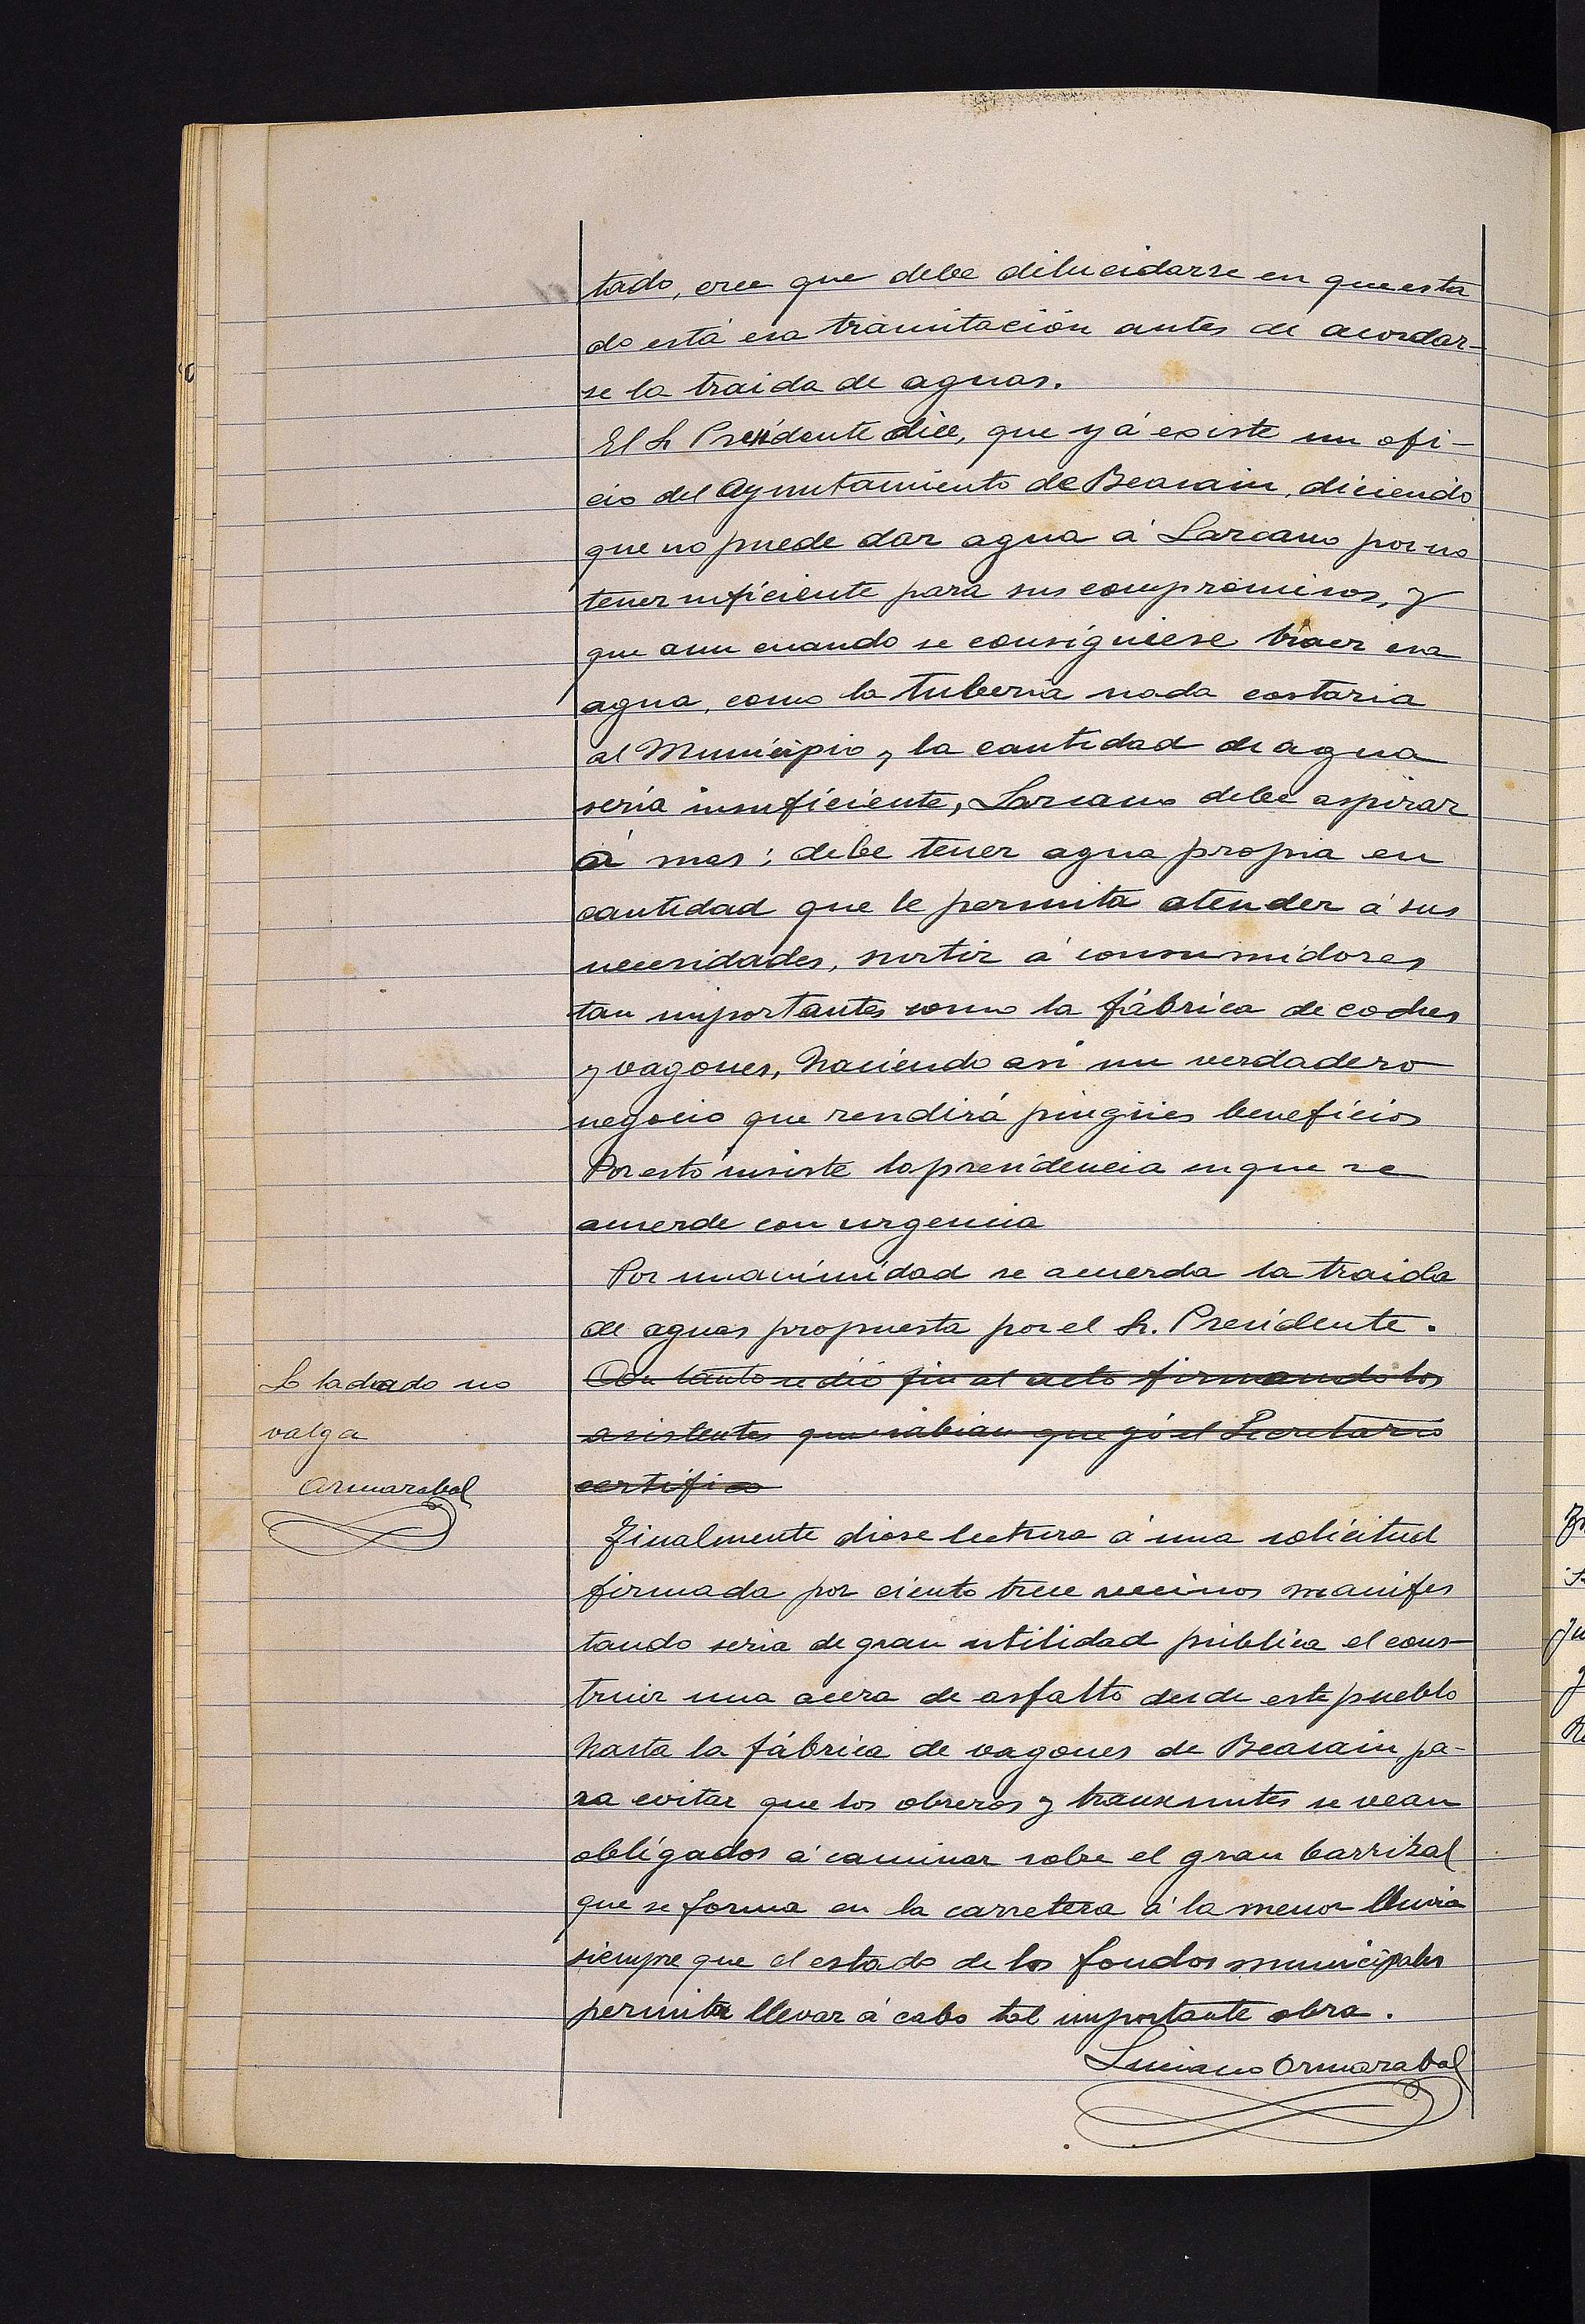 tado, cree que debe dilucidarse en que esta
do está esa tramitación antes de acordar-
se la traida de aguas.
El Sr Presidente dice, que yá existe un ofi-
cio del Ayuntamiento de Beasain, diciendo
que no puede dar agua á Lazcano por no
tener suficiente para sus compromisos, y
que aun cuando se consiguiese traer esa
agua, como la tuberia nada costaria
al Municipio y la cantidad de agua
seria insuficiente, Lazcano debe aspirar
á mas; debe tener agua propia en
cantidad que le permita atender á sus
necesidades, surtir á consumidores
tan importantes como la fábrica de coches
y vagones, haciendo asi un verdadero
negocio que rendirá pingües beneficios
Por esto insiste la presidencia en que se
acuerde con urgencia
Por unanimidad se acuerda la traida
de aguas propuesta por el Sr. Presidente.
Lo tachado no
valga
Ormazabal
Con tanto se dió fin al acto firmando los
asistentes que sabian que yó el Secretario
certifico
Finalmente diose lectura á una solicitud
firmada por ciento trece vecinos manifes
tando seria de gran utilidad pública el cons-
truir una acera de asfalto desde este pueblo
hasta la fábrica de vagones de Beasain, pa-
ra evitar que los obreros y transeuntes se vean
obligados á caminar sobre el gran barrizal
que se forma en la carretera á la menor lluvia
siempre que el estado de los fondos municipales
permita llevar á cabo tal importante obra.
Luciano Ormazabal